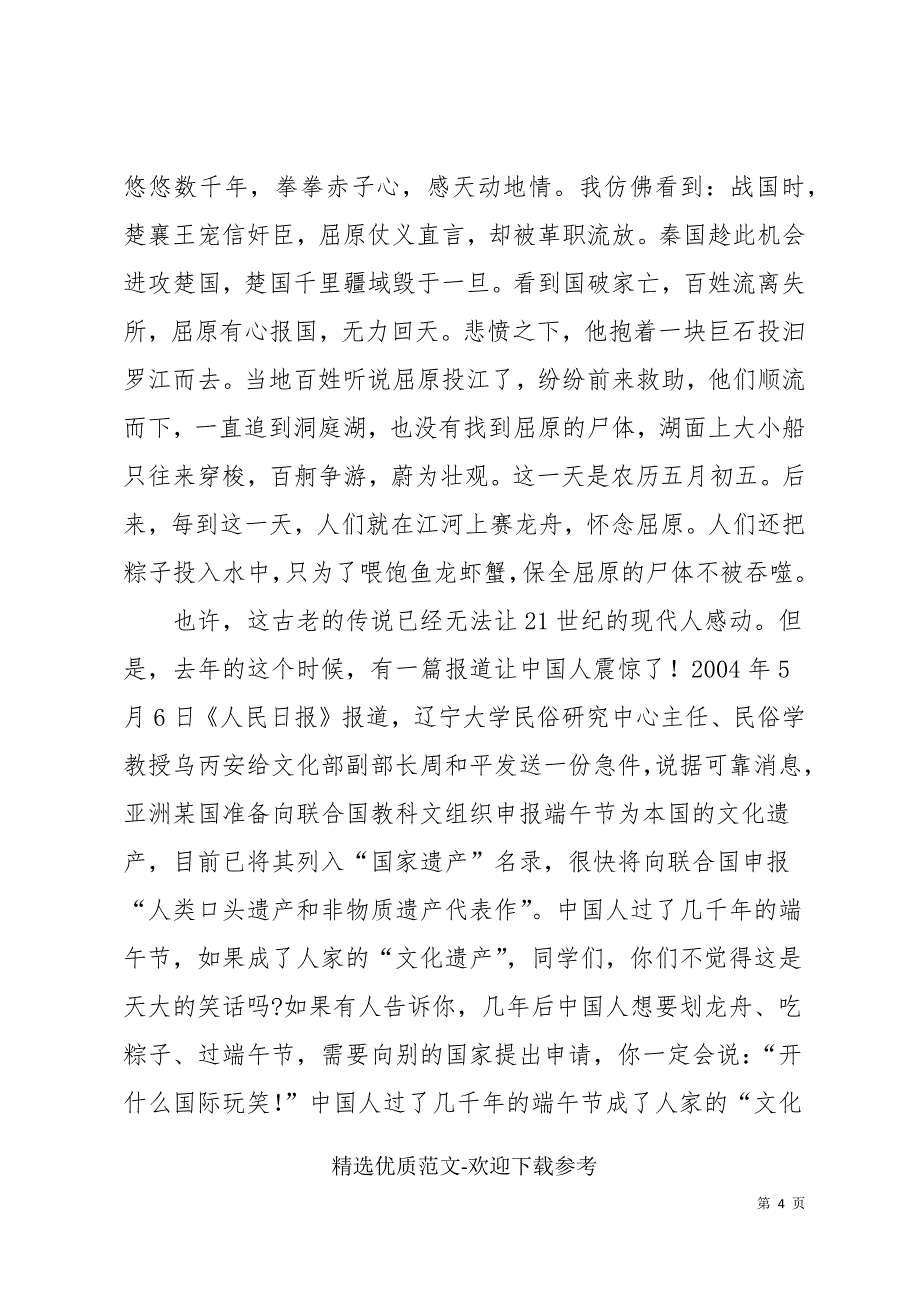 悠悠数千年，拳拳赤子心，感天动地情。我仿佛看到：战国时，
楚襄王宠信奸臣，屈原仗义直言，却被革职流放。秦国趁此机会
进攻楚国，楚国千里疆域毁于一旦。看到国破家亡，百姓流离失
所，屈原有心报国，无力回天。悲愤之下，他抱着一块巨石投汨
罗江而去。当地百姓听说屈原投江了，纷纷前来救助，他们顺流
而下，一直追到洞庭湖，也没有找到屈原的尸体，湖面上大小船
只往来穿梭，百舸争游，蔚为壮观。这一天是农历五月初五。后
来，每到这一天，人们就在江河上赛龙舟，怀念屈原。人们还把
粽子投入水中，只为了喂饱鱼龙虾蟹，保全屈原的尸体不被吞噬。
也许，这古老的传说已经无法让 21 世纪的现代人感动。但
是，去年的这个时候，有一篇报道让中国人震惊了！2004 年 5
月 6 日《人民日报》报道，辽宁大学民俗研究中心主任、民俗学
教授乌丙安给文化部副部长周和平发送一份急件，说据可靠消息，
亚洲某国准备向联合国教科文组织申报端午节为本国的文化遗
产，目前已将其列入“国家遗产”名录，很快将向联合国申报
“人类口头遗产和非物质遗产代表作”。中国人过了几千年的端
午节，如果成了人家的“文化遗产”，同学们，你们不觉得这是
天大的笑话吗?如果有人告诉你，几年后中国人想要划龙舟、吃
粽子、过端午节，需要向别的国家提出申请，你一定会说：“开
什么国际玩笑！”中国人过了几千年的端午节成了人家的“文化
精选优质范文-欢迎下载参考
第 4 页